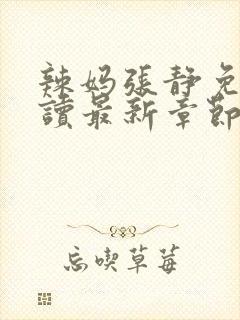 辣妈張静免
讀最新章節
忘喫草莓